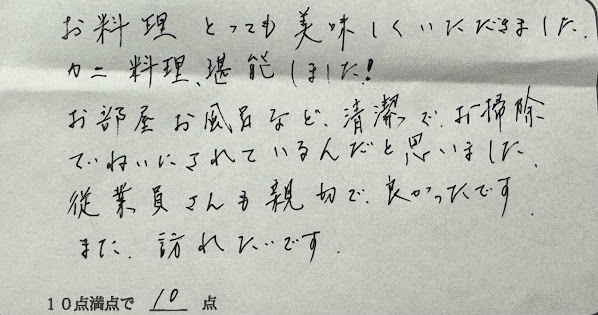 お料理 とっても美味しくいただきました.
カニ料理、堪能しました!
お部屋 お風呂など、清潔で、お掃除
ていねいにされているんだと思いました.
従業員さんも親切で、良かったです.
また、訪れたいです.
10点満点で 10 点